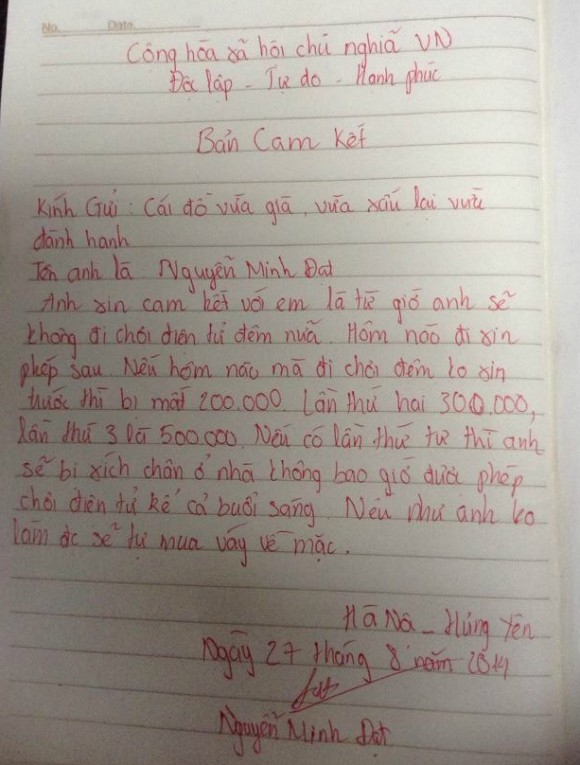 No. Date.
Công hòa xã hôi chủ nghiã VN
Đôc lâp - Tự do - Hanh phúc
Bản Cam Kết
Kính Gưỉ : Cái đồ vừa giã, vừa xấu lại vưà
đành hanh
Tên anh là Nguyễn Minh Đat
Anh xin cam kết vơí em là từ giờ anh sẽ
không đi chơi điên tử đêm nưã. Hôm nào đi xin
phép sau. Nếu hôm nào mà đi chơi đêm ko xin
trước thì bi mất 200.000. Lần thứ hai 300.000,
lần thứ 3 là 500.000. Nếu có lần thứ tư thì anh
sẽ bi xích chân ở nhà không bao giờ đươc phép
chơi điên tử kể cả buổi sáng. Nếu như anh ko
làm đc sẽ tự mua váy về mặc.
Hà Nôi - Hưng Yên
Ngày 27 tháng 8 năm 2014
Nguyễn Minh Đat